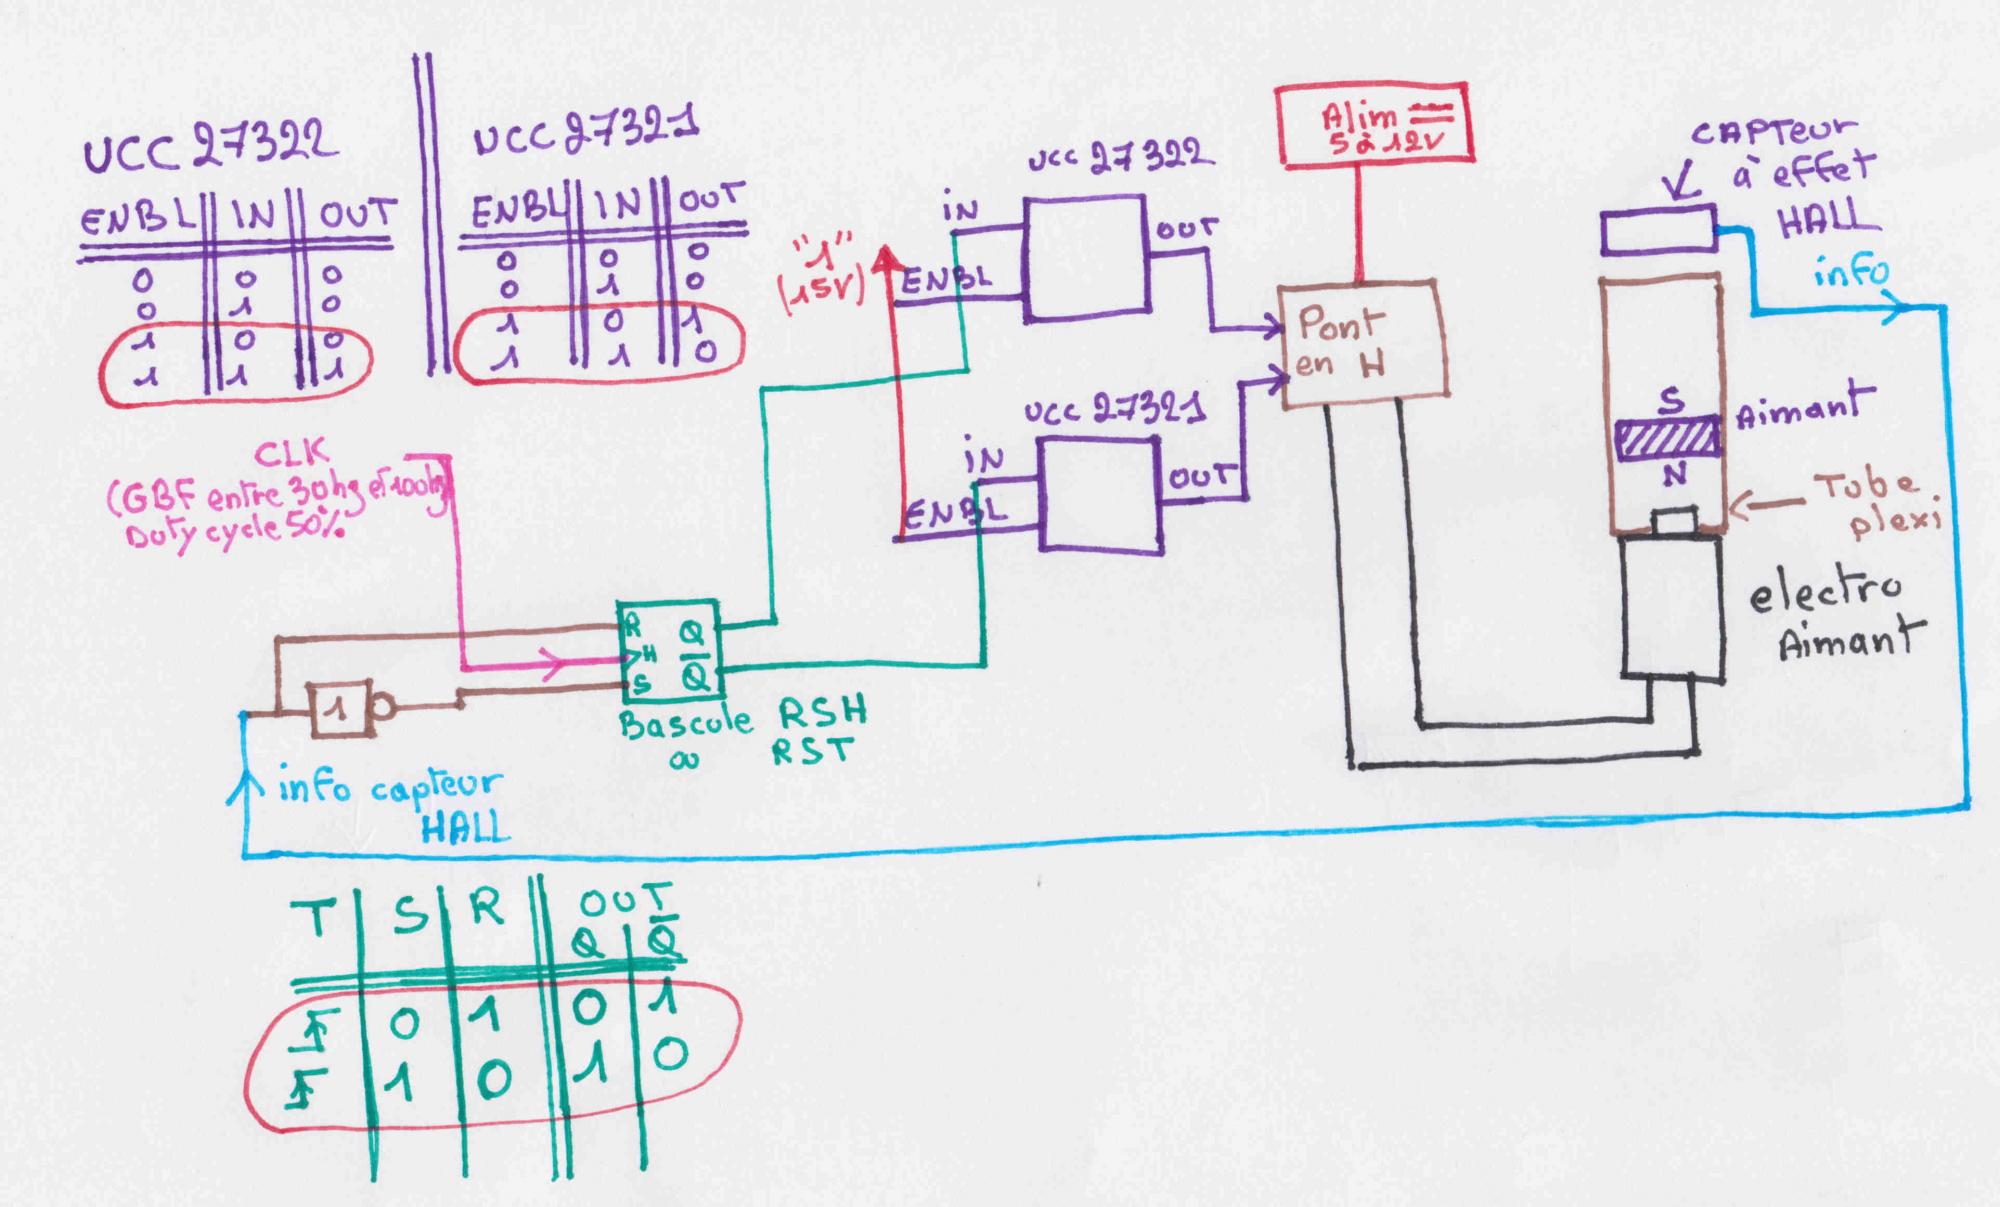 UCC 27322
ENBL IN OUT
0 0 0
0 1 0
1 0 0
1 1 1
UCC 27321
ENBL IN OUT
0 0 0
0 1 0
1 0 1
1 1 0
CLK
(GBF entre 30hz et 100hz)
Duty cycle 50%
"1"
(15V)
UCC 27322
IN
ENBL
OUT
UCC 27321
IN
ENBL
OUT
Alim
5 à 12V
Pont
en H
CAPTeur
à effet
HALL
info
S
Aimant
N
Tube
plexi
electro
Aimant
1
R
H
S
Q
Q̅
Bascule RSH
ou RST
info capteur
HALL
T S R OUT
Q Q̅
0 1 0 1
1 0 1 0